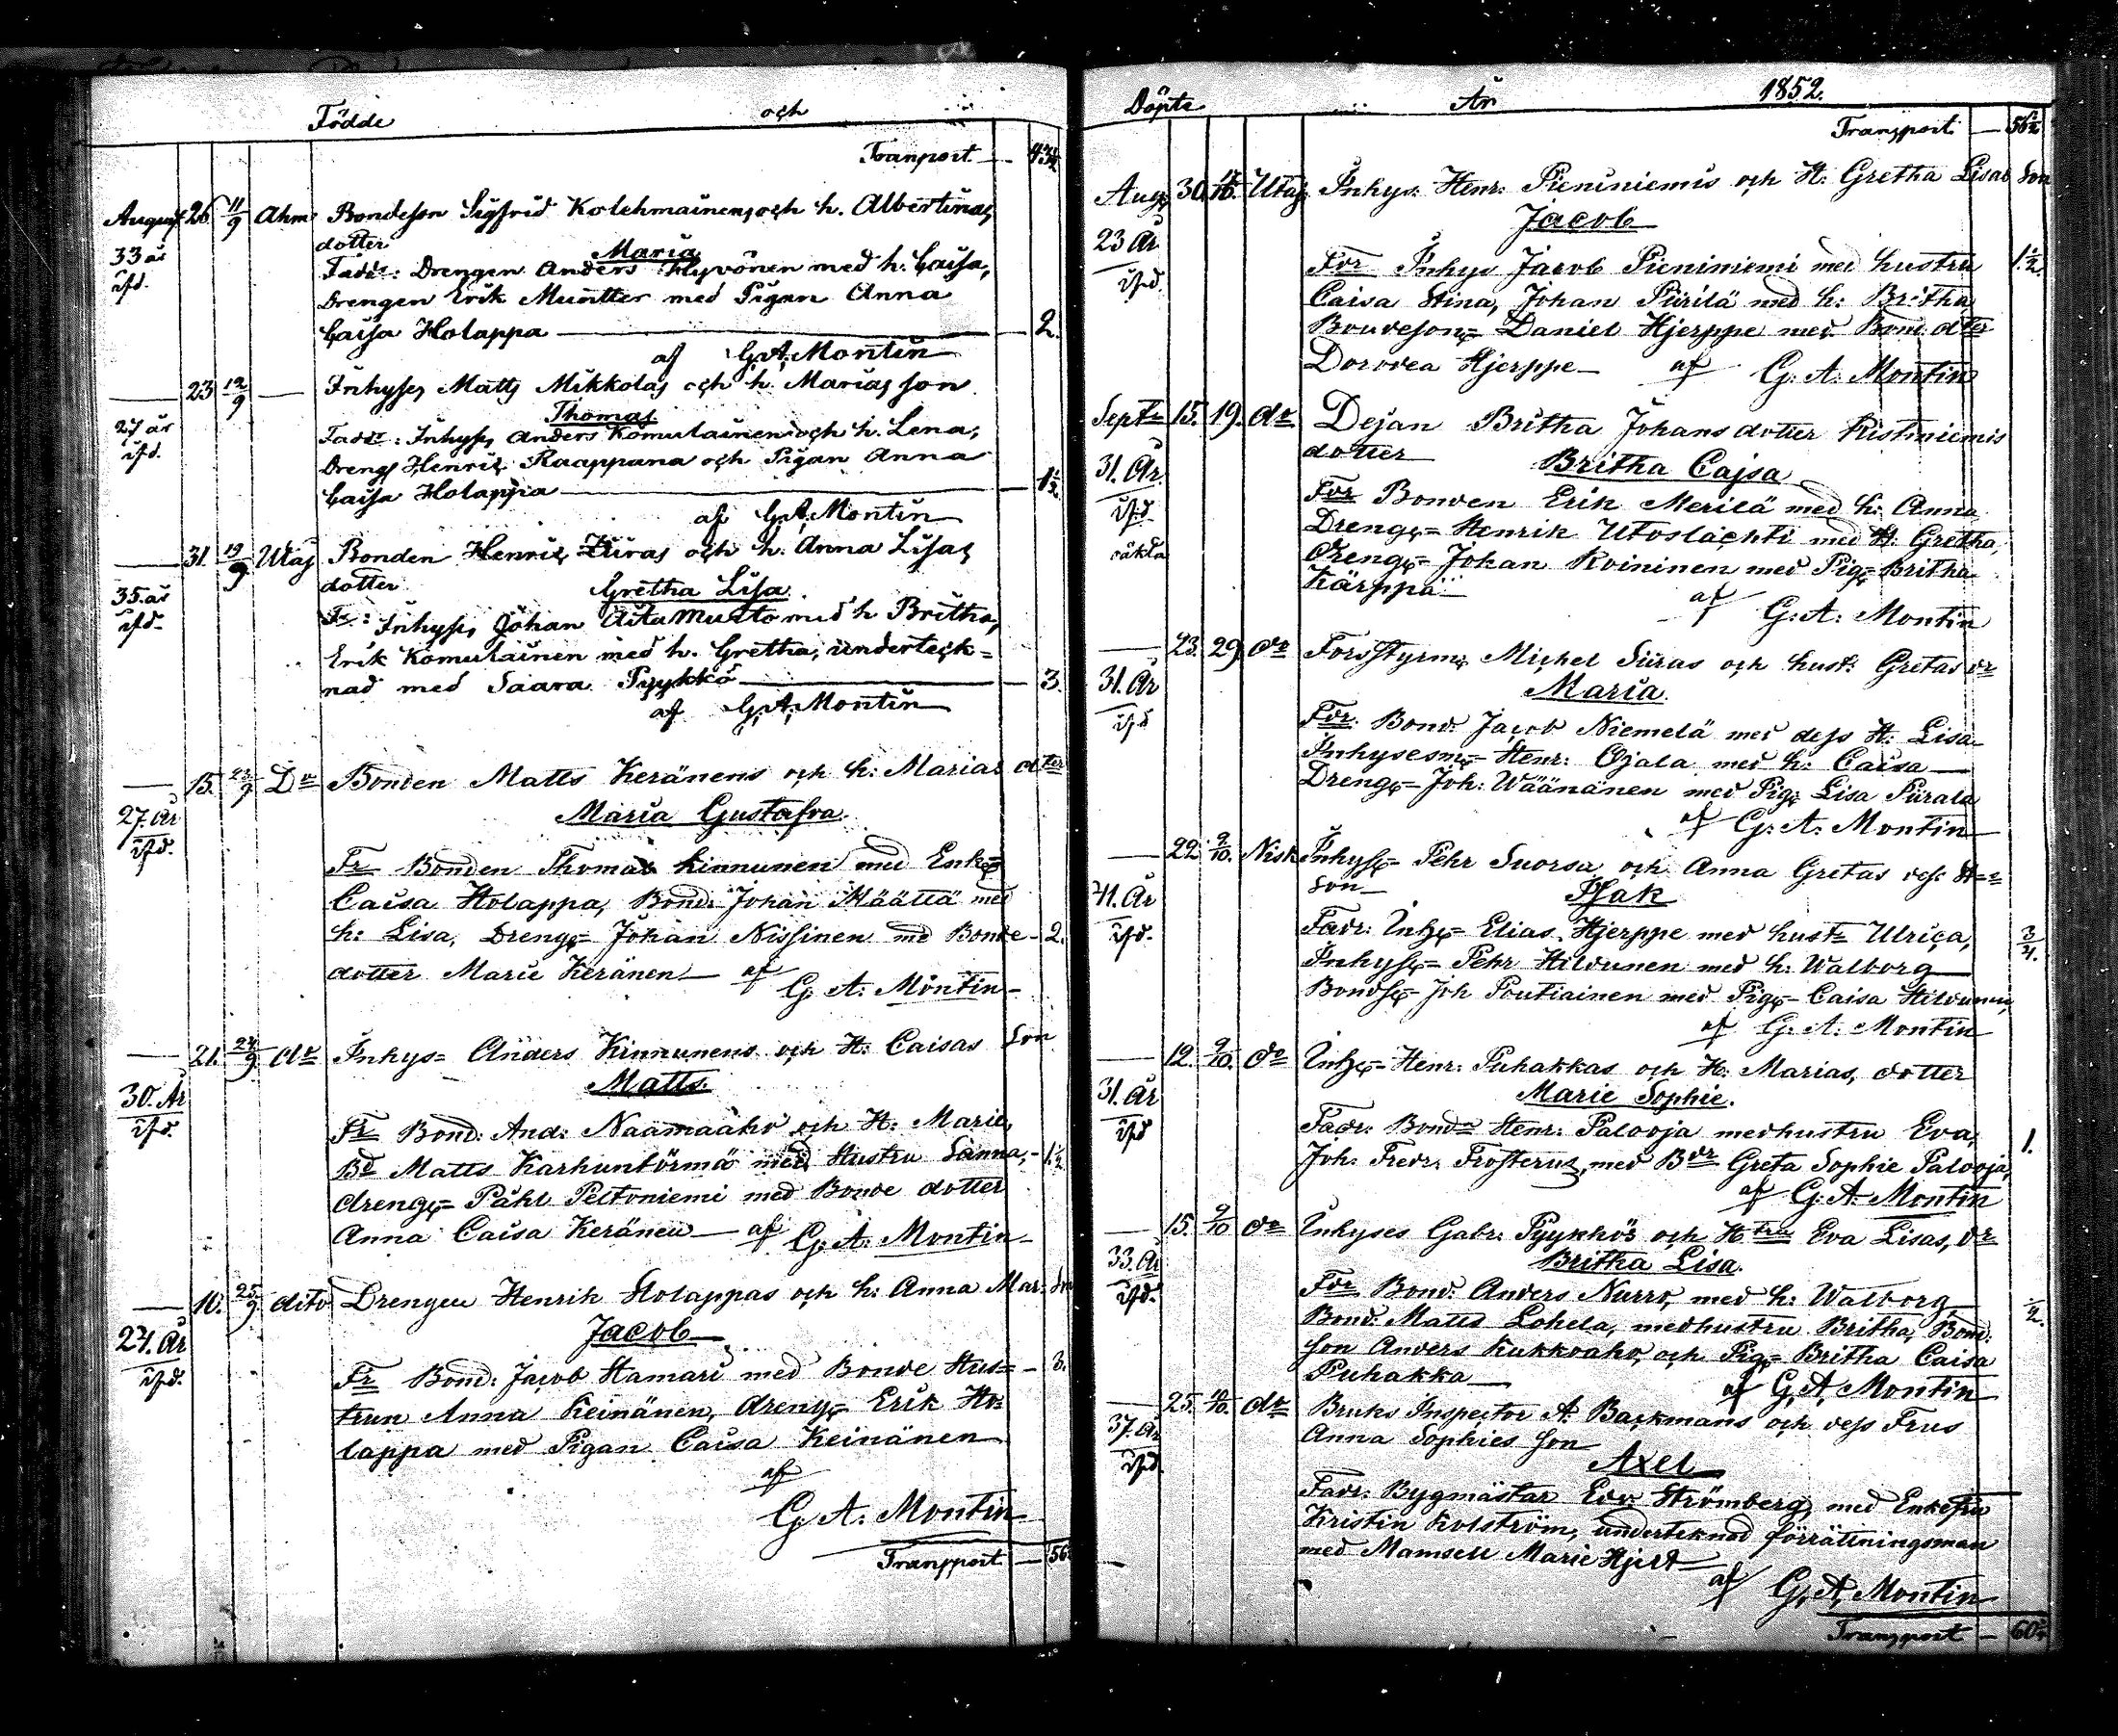 Födde och
Tranport
August 26 11/9 Ahm Bondeson Sigfrid Kolehmainens och h. Albertinas
dotter
Maria
33 år Fadd: Drengen Anders Hyvönen med h. Caisa,
Drengen Erik Muntter med Pigan Anna
Caisa Holappa 2.
af G. A. Montin
23 12/9 Inhys Matts Mikkolas och h. Marias son
Thomas
27 år Fadd: Inhys Anders Komulainen och h. Lena,
Dreng Henric Raappana och Pigan Anna
Caisa Holappa 1½
af G. A. Montin
31. 19/9 Utaj Bonden Henric Züras och h. Anna Lisas
dotter
Gretha Lisa
35. år Fr: Inhys Johan Aitamusto med h Britha,
Erik Komulainen med h. Gretha, underteck=
nad med Saara Pyykkö 3.
af G. A. Montin
15. 22/9 Do Bonden Matts Keränens och h: Marias dter
27. År Maria Gustafva
Fr Bonden Thomas Kinnunen med Enke
Caisa Holappa, Bond: Johan Määttä med
h: Lisa, Dreng= Johan Nissinen md Bonde- 2.
dotter Marie Keränen af
G. A. Montin
21. 24/9 do Inhys= Anders Kinnunens och H: Caisas Son
30. År Matts
Fr Bond: And: Naamaaho och H: Marie,
Bd Matts Karhuntörmä med Hustru Sanna, 1½
dreng= Påhl Peltoniemi med Bonde dotter
Anna Caisa Keränen af G. A. Montin
16. 25/9 dito Drengen Henrik Holappas och h: Anna Mar: Son
24. År Jacob
Fr Bond: Jacob Hamari med Bonde Hus= 3.
trun Anna Keinänen, dreng= Erik Ho=
lappa med Pigan Caisa Keinänen
af
G. A. Montin
Transport 56
Döpte År 1852.
Transport 56½
Aug 30. Utaj Inhys: Henr: Pieniniemis och H: Gretha Lisas Son
Jacob
23 År Fdr Inhys Jacob Pieniniemi med hustru 1½
Caisa Stina, Johan Piirilä med h: Britha
Bondeson= Daniel Hjerppe med Bond dter
Dorodea Hjerppe af G. A. Montin
Septr 15. 19. do Dejan Britha Johansdotter Ristiniemis
dotter Britha Cajsa
31. År Fdr Bonden Erik Merilä med h: Anna
Dreng= Henrik Utoslachti med H: Gretha,
räkla
dreng= Johan Koininen med Pig= Britha
Kärppä
af G. A. Montin
23. 29. do Forsstyrm Michel Siiras och hust: Gretas dr
31. År Maria.
Fdr Bond: Jacob Niemelä med dess H: Lisa
Inhysesm= Henr: Ojala med h: Caisa
Dreng= Joh: Wäänänen med Pig: Lisa Piirala
af G. A. Montin
22. 2/10. Nisk Inhys= Pehr Suorsa och Anna Gretas
son Isak
41. År Fadr: Inh= Elias Hjerppe med hustr Ulrica, 3/4.
Inhys= Pehr Hildunen med h: Walborg
Bonds= Joh Poutiainen med Pig= Caisa Hildunen,
af G. A. Montin
12. 9/10. do Inh= Henr: Puhakkas och H: Marias, dotter
31. År Marie Sophie.
Fadr: Bond= Henr: Palooja medhustru Eva, 1.
Joh: Fredr: Frosterus med Bdr Greta Sophie Palooja,
af G. A. Montin
15. 9/10 do Inhyses Gabr: Pyykkös och Htru Eva Lisas, dr
33. År Britha Lisa.
Fdr Bond: Anders Nurro, med h: Walborg
Bond: Matts Lohela, medhustru Britha, Bond: ½
son Anders Kukkoaho, och Pig= Britha Caisa
Puhakka af G. A. Montin
25. 10/10. do Bruks Inspector A: Backmans och dess Frus
37. År Anna Sophies son
Axel
Fadr: Bygmästar Edv: Strömberg med Enkefru
Kristin Kolström, underteknad förrättningsman
med Mamsell Marie Hjelt
af G. A. Montin
Transport